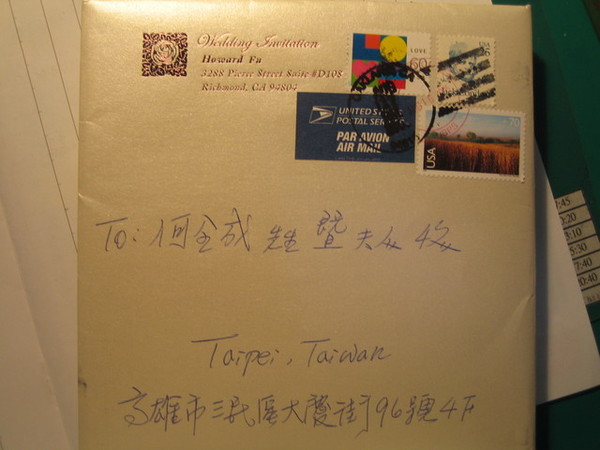 Wedding Invitation
Howard Fu
3288 Pierce Street Suite #D108
Richmond, CA 94804
LOVE
60
USA
UNITED STATES
POSTAL SERVICE
PAR AVION
AIR MAIL
USA
70
To: 何全成 先生 暨 夫人 收
Taipei, Taiwan
高雄市三民區大慶街96號4F
:45
:20
:10
:30
:40
:40